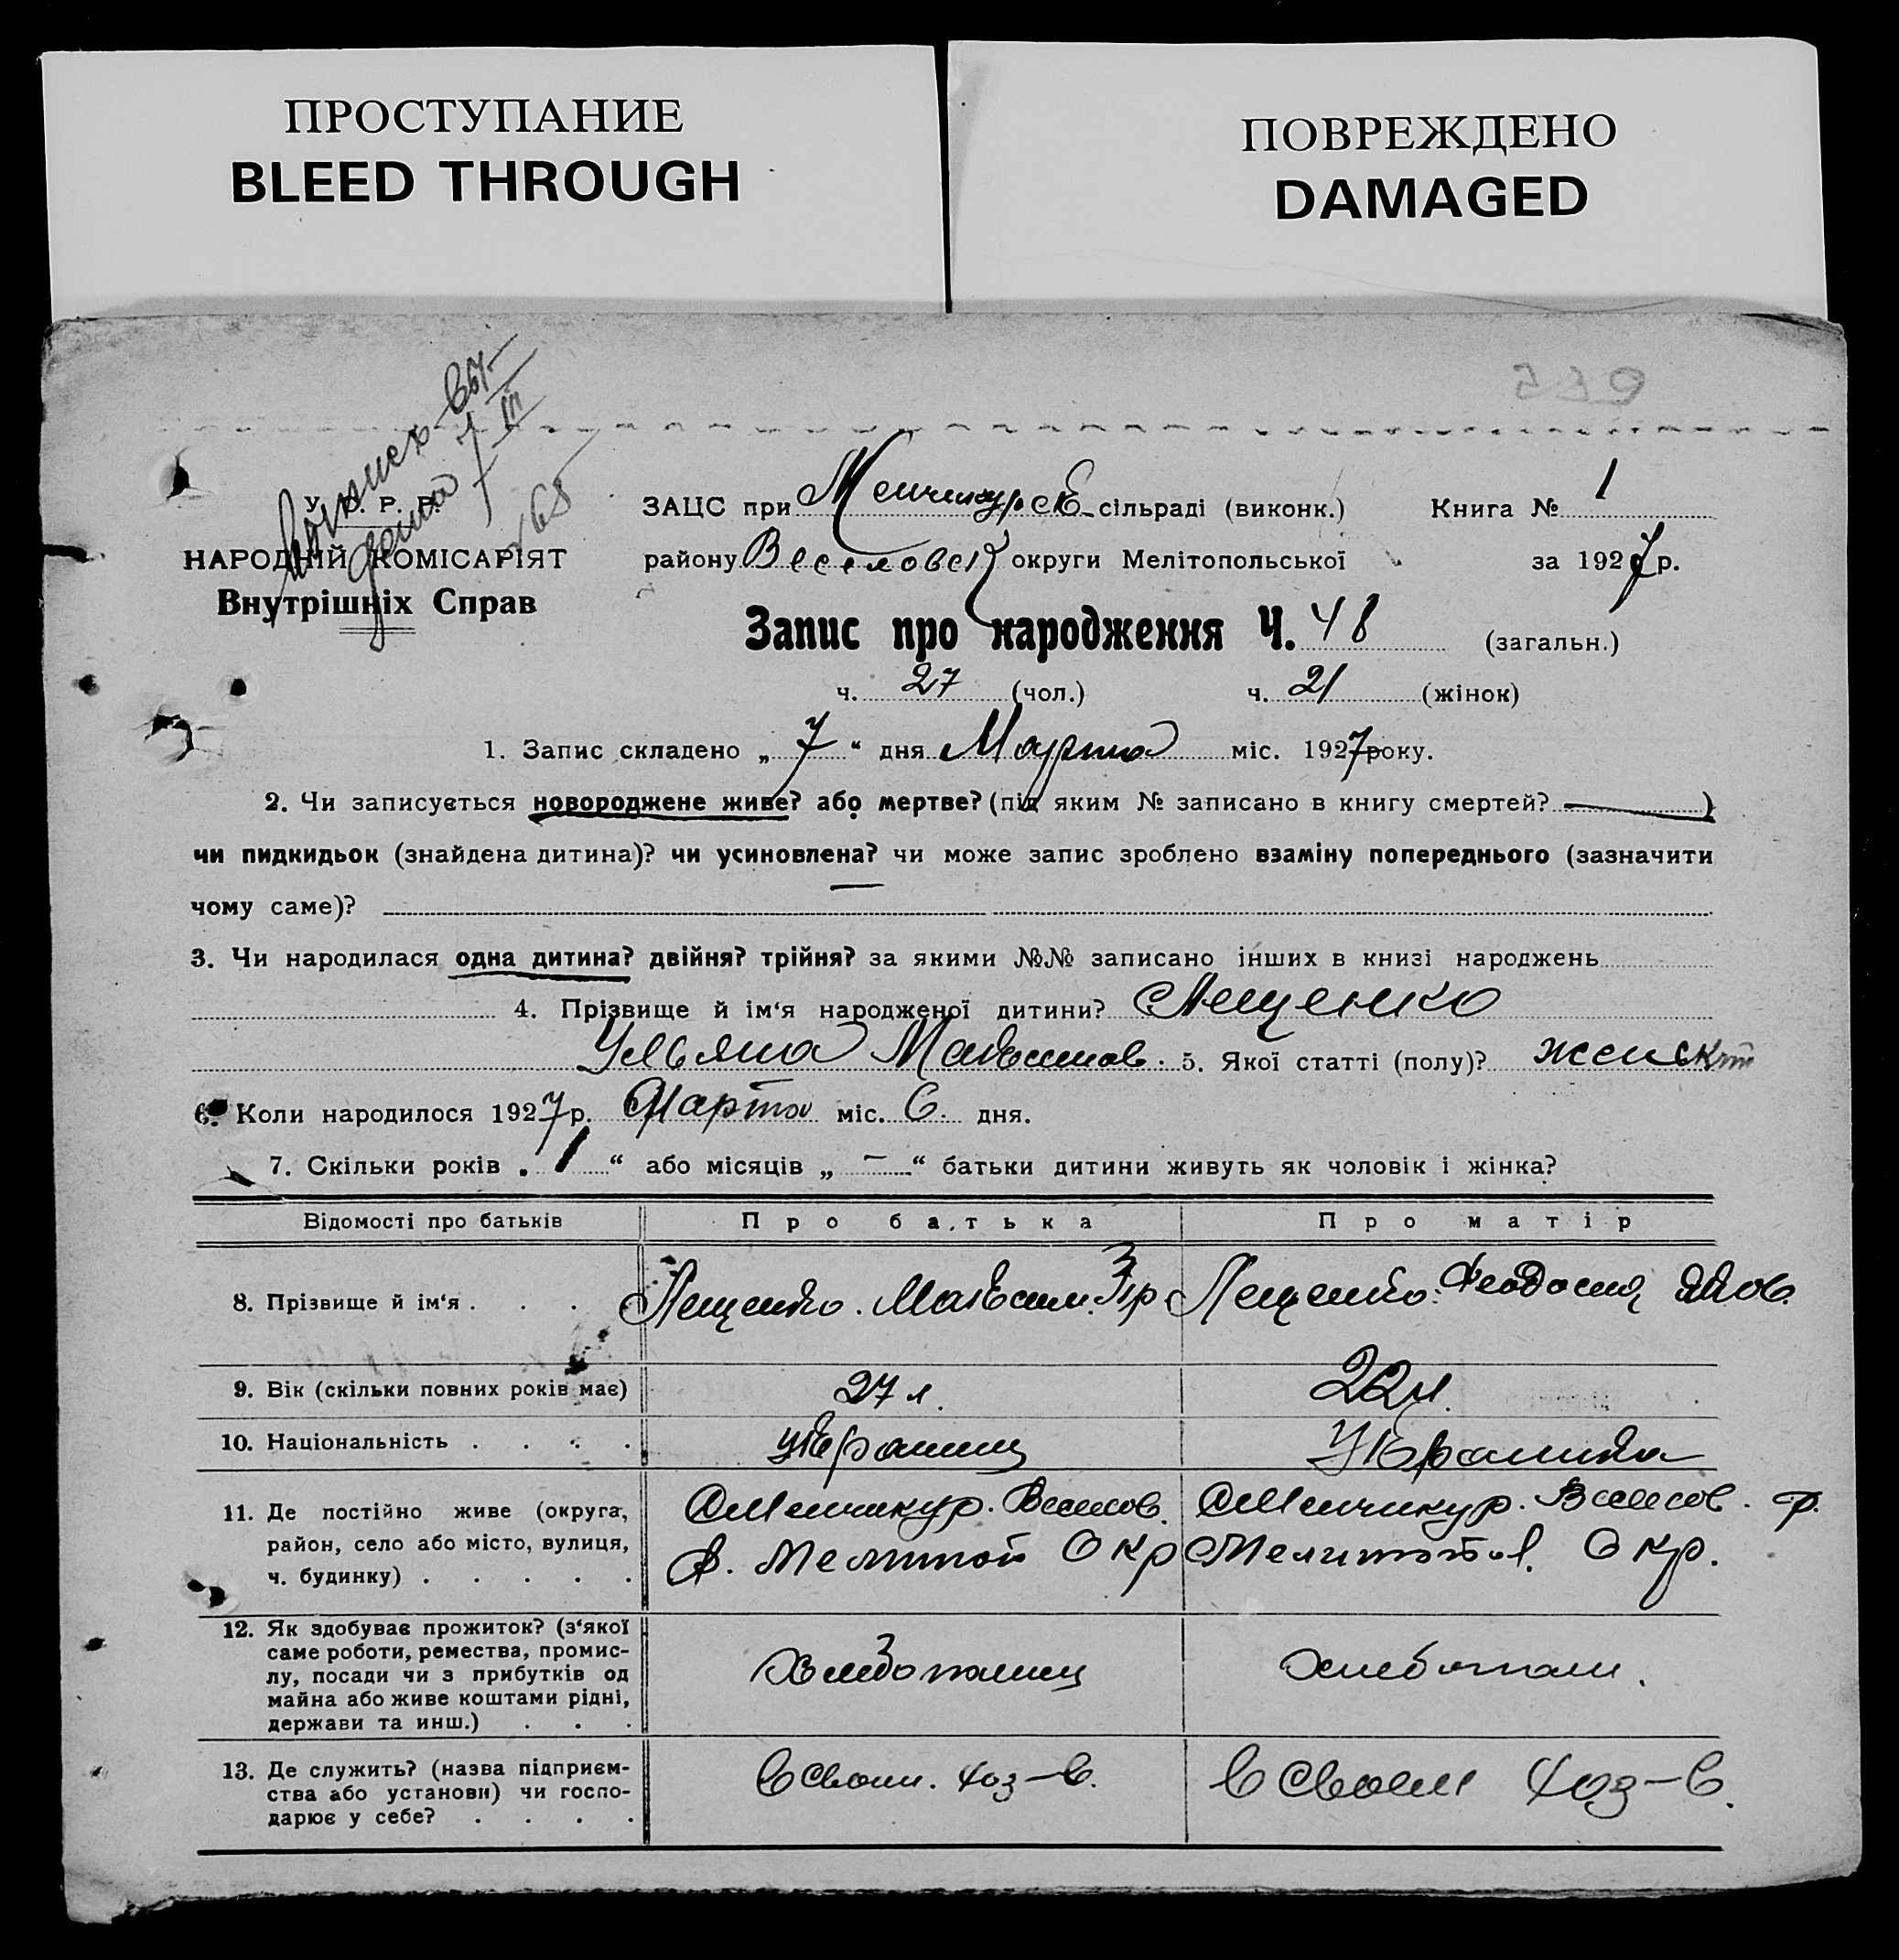 ПРОСТУПАНИЕ
BLEED THROUGH
ПОВРЕЖДЕНО
DAMAGED
У. С. Р. Р.
НАРОДНІЙ КОМІСАРІЯТ
Внутрішніх Справ
ЗАЦС при Менчикурск-сільраді (виконк.) Книга № 1
району Веселовск округи Мелітопольської за 1927 р.
Запис про народження Ч. 48 (загальн.)
ч. 27 (чол.) ч. 21 (жінок)
1. Запис складено „ 7 “ дня Марта міс. 1927 року.
2. Чи записується новороджене живе? або мертве? (під яким № записано в книгу смертей? — )
чи пидкидьок (знайдена дитина)? чи усиновлена? чи може запис зроблено взаміну попереднього (зазначити
чому саме)?
3. Чи народилася одна дитина? двійня? трійня? за якими №№ записано інших в книзі народжень
4. Прізвище й ім‘я народженої дитини? Лещенко
Ульяна Максимов. 5. Якої статті (полу)? женск
6. Коли народилося 1927 р. Марта міс. 6. дня.
7. Скільки років „ 1 “ або місяців „ — “ батьки дитини живуть як чоловік і жінка?
Відомості про батьків Про батька Про матір
8. Прізвище й ім‘я . . . . Лещенко. Максим. Гр. Лещенко. Феодосия Яков.
9. Вік (скільки повних років має) 27 л. 22 л.
10. Національність . . . . украинец Украинка
11. Де постійно живе (округа, район, село або місто, вулиця, ч. будинку) . . . . .
с Менчикур. Веселов. с Менчикур. Веселов. р.
р. Мелитоп Окр Мелитопол. Окр.
12. Як здобуває прожиток? (з‘якої саме роботи, ремества, промислу, посади чи з прибутків од майна або живе коштами рідні, держави та инш.) . . .
Хлебопашец Хлебопаш.
13. Де служить? (назва підприємства або установи) чи господарює у себе? . . . .
в своем. хоз-в. в своем хоз-в.